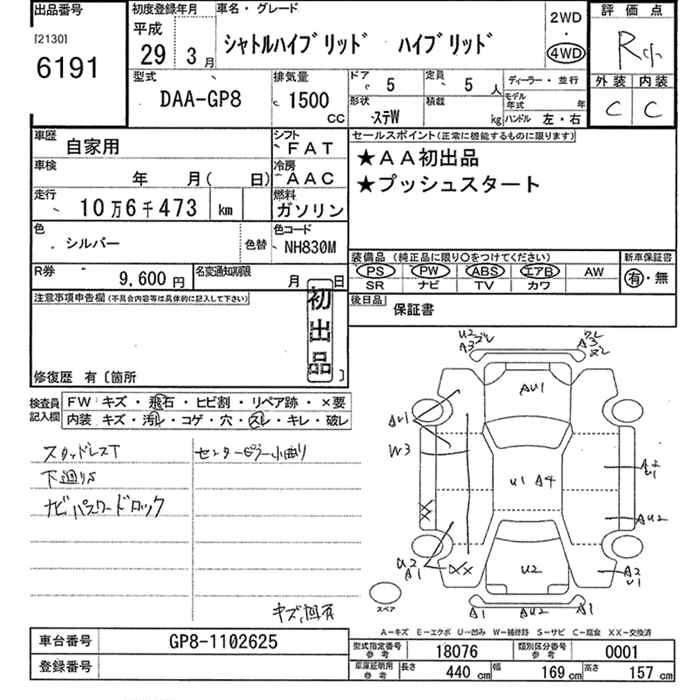 出品番号 初度登録年月 車名・グレード 2WD 評価点
[2130] 平成
6191 29 3月 シャトルハイブリッド ハイブリッド 4WD R小
型式 排気量 ドア 5 定員 5人 ディーラー・並行 外装 内装
DAA-GP8 1500 CC 形状 ステW 積載 kg モデル年式 年 C C
ハンドル 左・右
車歴 自家用 シフト FAT セールスポイント(正常に機能するものに限ります)
車検 年 月( 日) 冷房 AAC ★AA初出品
走行 10万6千473 km 燃料 ガソリン ★プッシュスタート
色 シルバー 色替 色コード NH830M
装備品 (純正品に限り○をつけてください) 新車保証書
PS PW ABS エアB AW 有・無
SR ナビ TV カワ
R券 9,600円 名変通知期限 月 日
後日品 保証書
注意事項申告欄(不具合内容等は具体的に記入して下さい)
初出品
修復歴 有〔箇所 〕
検査員記入欄 FW キズ・飛石・ヒビ割・リペア跡・×要
内装 キズ・汚レ・コゲ・穴・スレ・キレ・破レ
スタッドレスT センターピラー小曲り
下廻りS
ナビパスワードロック
キズ、凹有
U2
A3
A3
AU1
AU1
W3
U1 A4
A2
U1
XX
AU2
U2
A1
XX
U2
A2
U1
スペア
A1 AU2 A1
A-キズ E-エクボ U-凹み W-補修跡 S-サビ C-腐食 XX-交換済
車台番号 GP8-1102625
登録番号
型式指定番号 参考 18076 類別区分番号 参考 0001
車庫証明用 参考 長さ 440 cm 幅 169 cm 高さ 157 cm